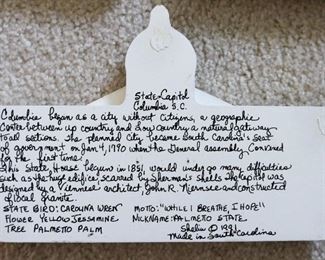 State Capitol
Columbia S.C.
Columbia began as a city without citizens, a geographic
center between up country and low country a natural gateway
to all sections. The planned City became South Carolina's seat
of government on Jan 4, 1790 when the General assembly convened
for the first time.
This State House begun in 1851, would undergo many difficulties
such as the huge edifice scarred by Sherman's shells. The Capitol was
designed by a Viennese architect, John R. Niernsee and constructed
of local granite.
STATE BIRD: CAROLINA WREN MOTTO: "WHILE I BREATHE I HOPE"
FLOWER YELLOW JESSAMINE NICKNAME: PALMETTO STATE
TREE PALMETTO PALM Shelia © 1991
Made in South Carolina